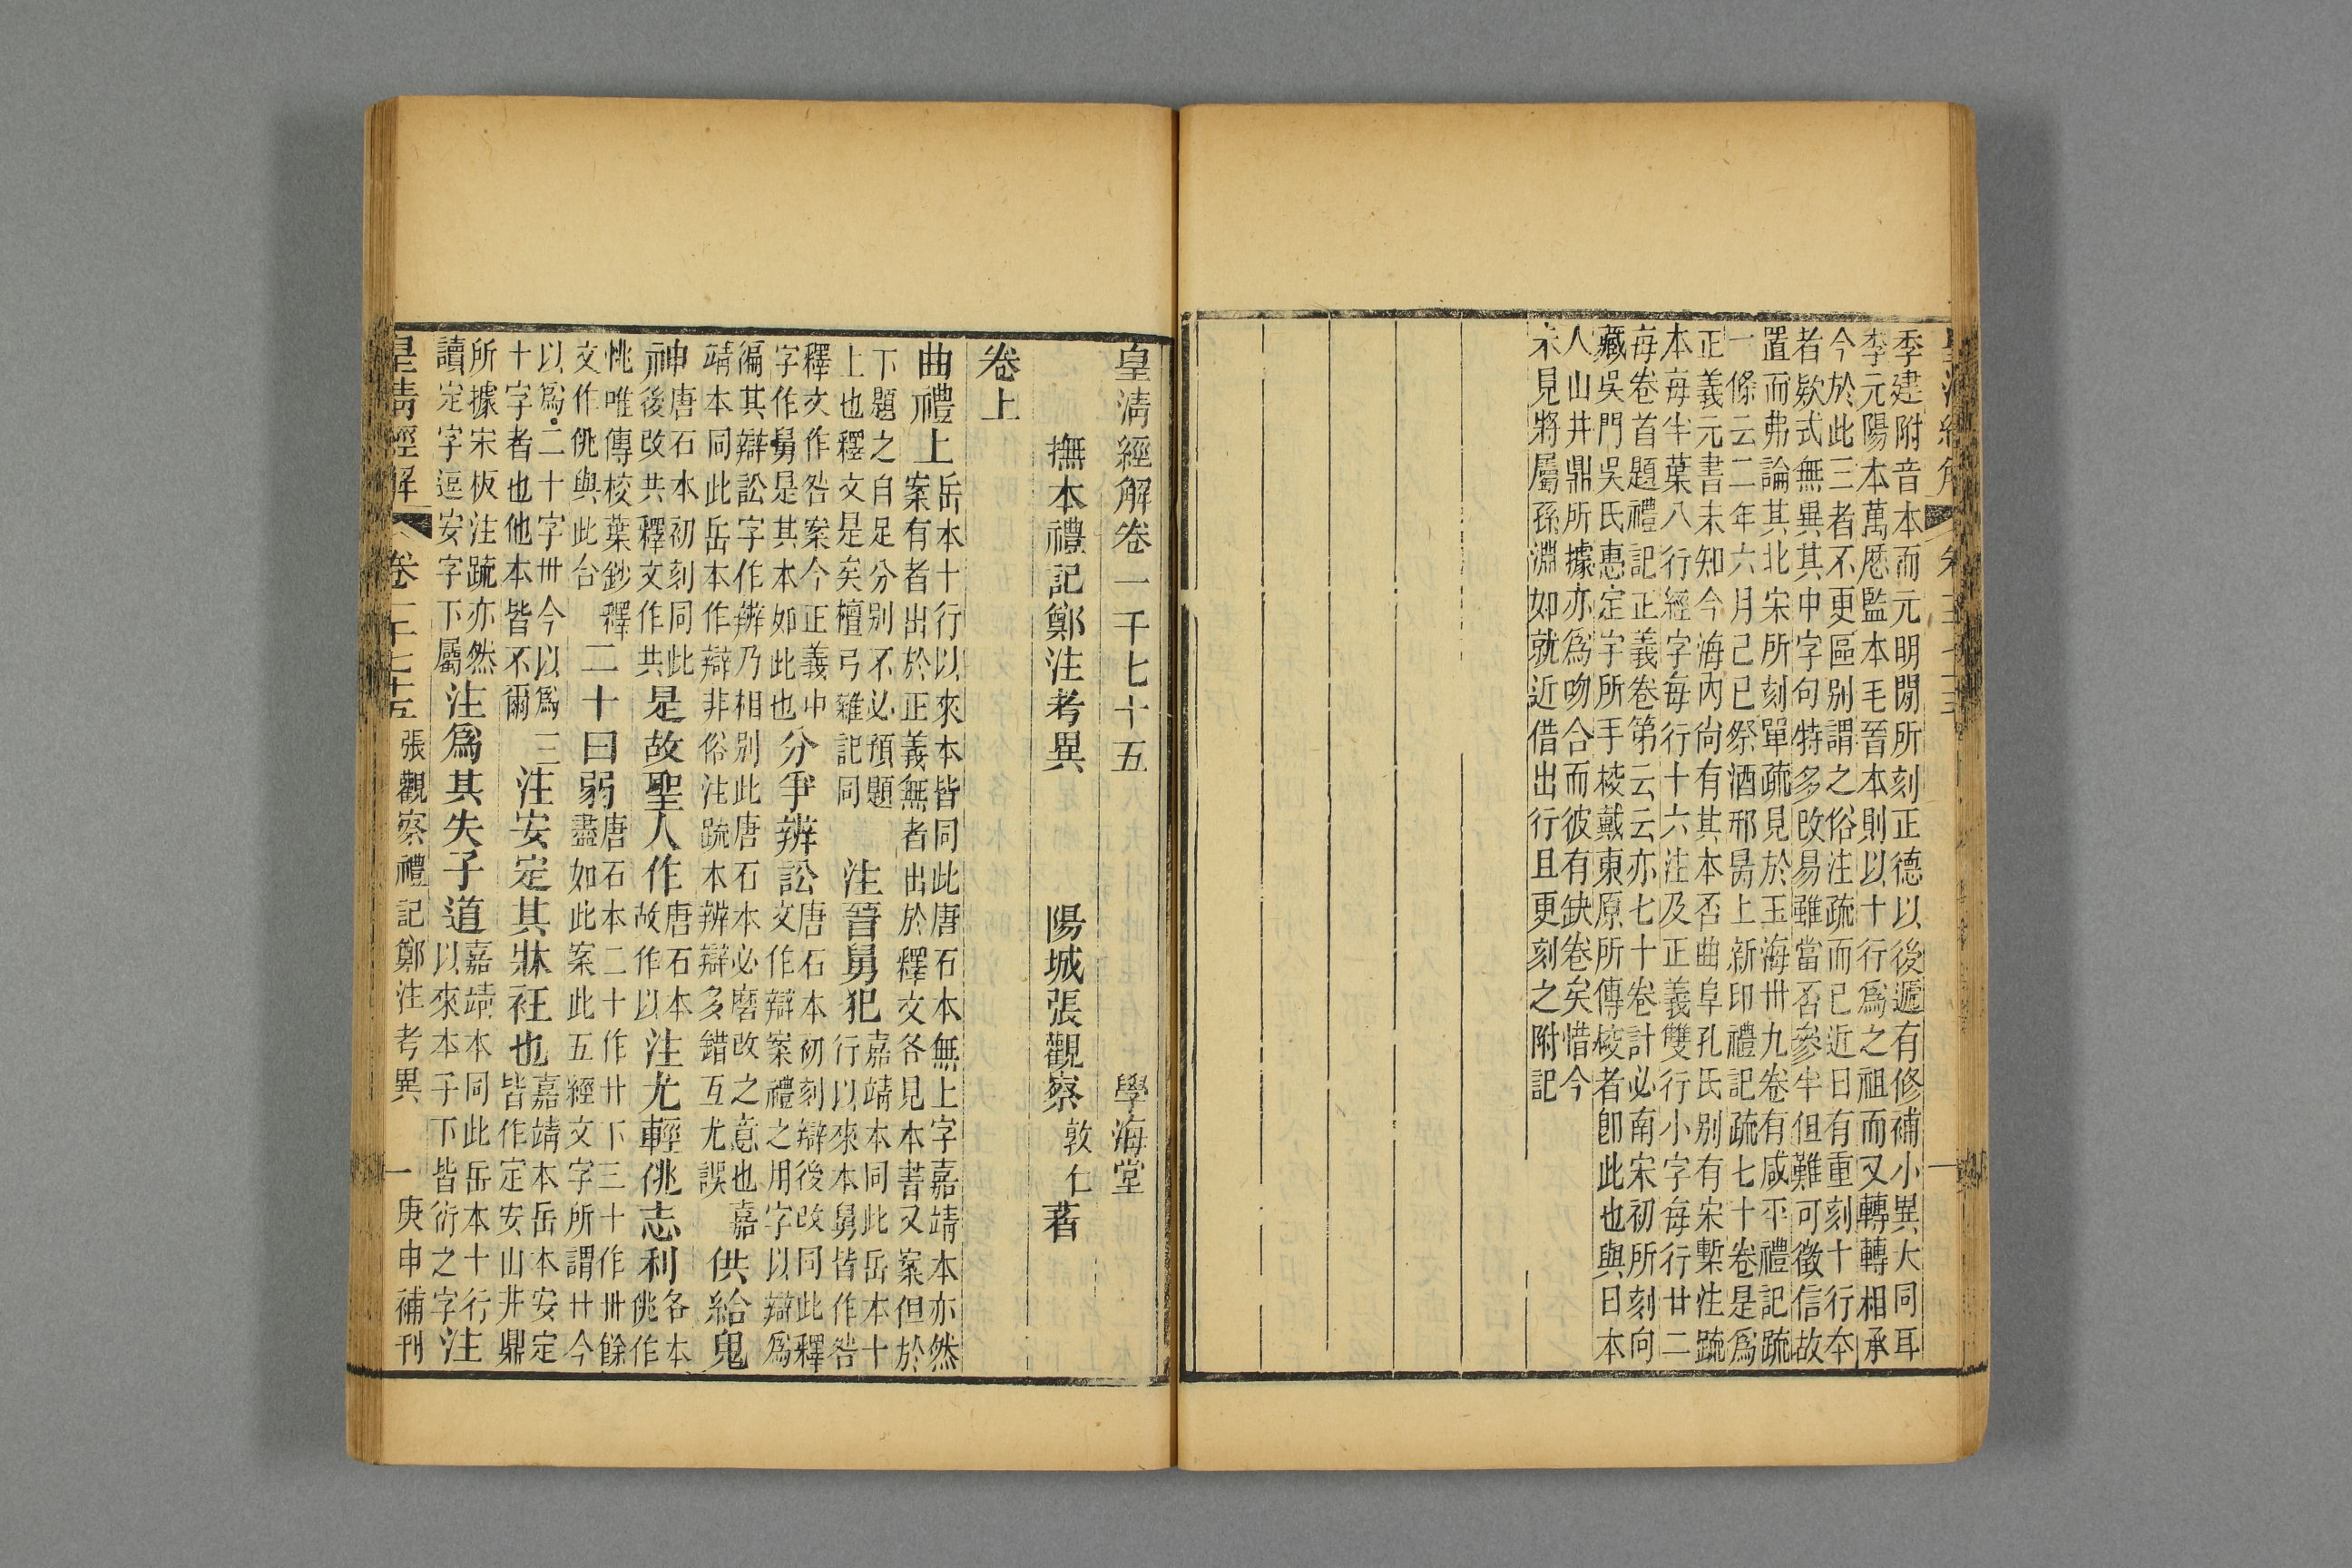 季建附音本而元明閒所刻正德以後遞有修補小異大同耳
李元陽本萬厯監本毛晉本則以十行爲之祖而又轉轉相承
今於此三者不更區别謂之俗注疏而已近日有重刻十行本
者欵式無異其中字句特多改易雖當否參半但難可徵信故
置而弗論其北宋所刻單疏見於玉海卅九卷有咸平禮記疏
一條云二年六月己巳祭酒邢昺上新印禮記疏七十卷是爲
正義元書未知今海內尚有其本否曲阜孔氏别有宋槧注疏
本每半葉八行經字每行十六注及正義雙行小字每行廿二
每卷首題禮記正義卷第云云亦七十卷計必南宋初所刻向
藏吳門吳氏惠定宇所手校戴東原所傳校者卽此也與日本
人山井鼎所據亦爲吻合而彼有缺卷矣惜今
未見將屬孫淵如就近借出行且更刻之附記
皇清經解卷一千七十五
學海堂
撫本禮記鄭注考異
陽城張觀察敦仁著
卷上
曲禮上岳本十行以來本皆同此唐石本無上字嘉靖本亦然
案有者出於正義無者出於釋文各見本書又案但於
下題之自足分别不必預題
上也釋文是矣檀弓雜記同
注晉舅犯嘉靖本同此岳本十
行以來本舅皆作咎
釋文作咎案今正義中
字作舅是其本如此也
分爭辨訟唐石本初刻辯後改同此釋
文作辯案禮之用字以辯爲
徧其辯訟字作辨乃相别此唐石本必磨改之意也嘉
靖本同此岳本作辯非俗注疏本辨辯多錯互尤誤
供給鬼
神唐石本初刻同此
後改共釋文作共
是故聖人作唐石本
故作以
注尤輕佻志利各本
佻作
恌唯傳校葉鈔釋
文作佻與此合
二十曰弱唐石本二十作廿下三十作卅餘
盡如此案此五經文字所謂廿今
以爲二十字卅今以爲三
十字者也他本皆不爾
注安定其牀衽也嘉靖本岳本安定
皆作定安山井鼎
所據宋板注疏亦然
讀定字逗安字下屬
注爲其失子道嘉靖本同此岳本十行
以來本子下皆衍之字
注
皇清經解
卷一千七十五
張觀察禮記鄭注考異
一
庚申補刊